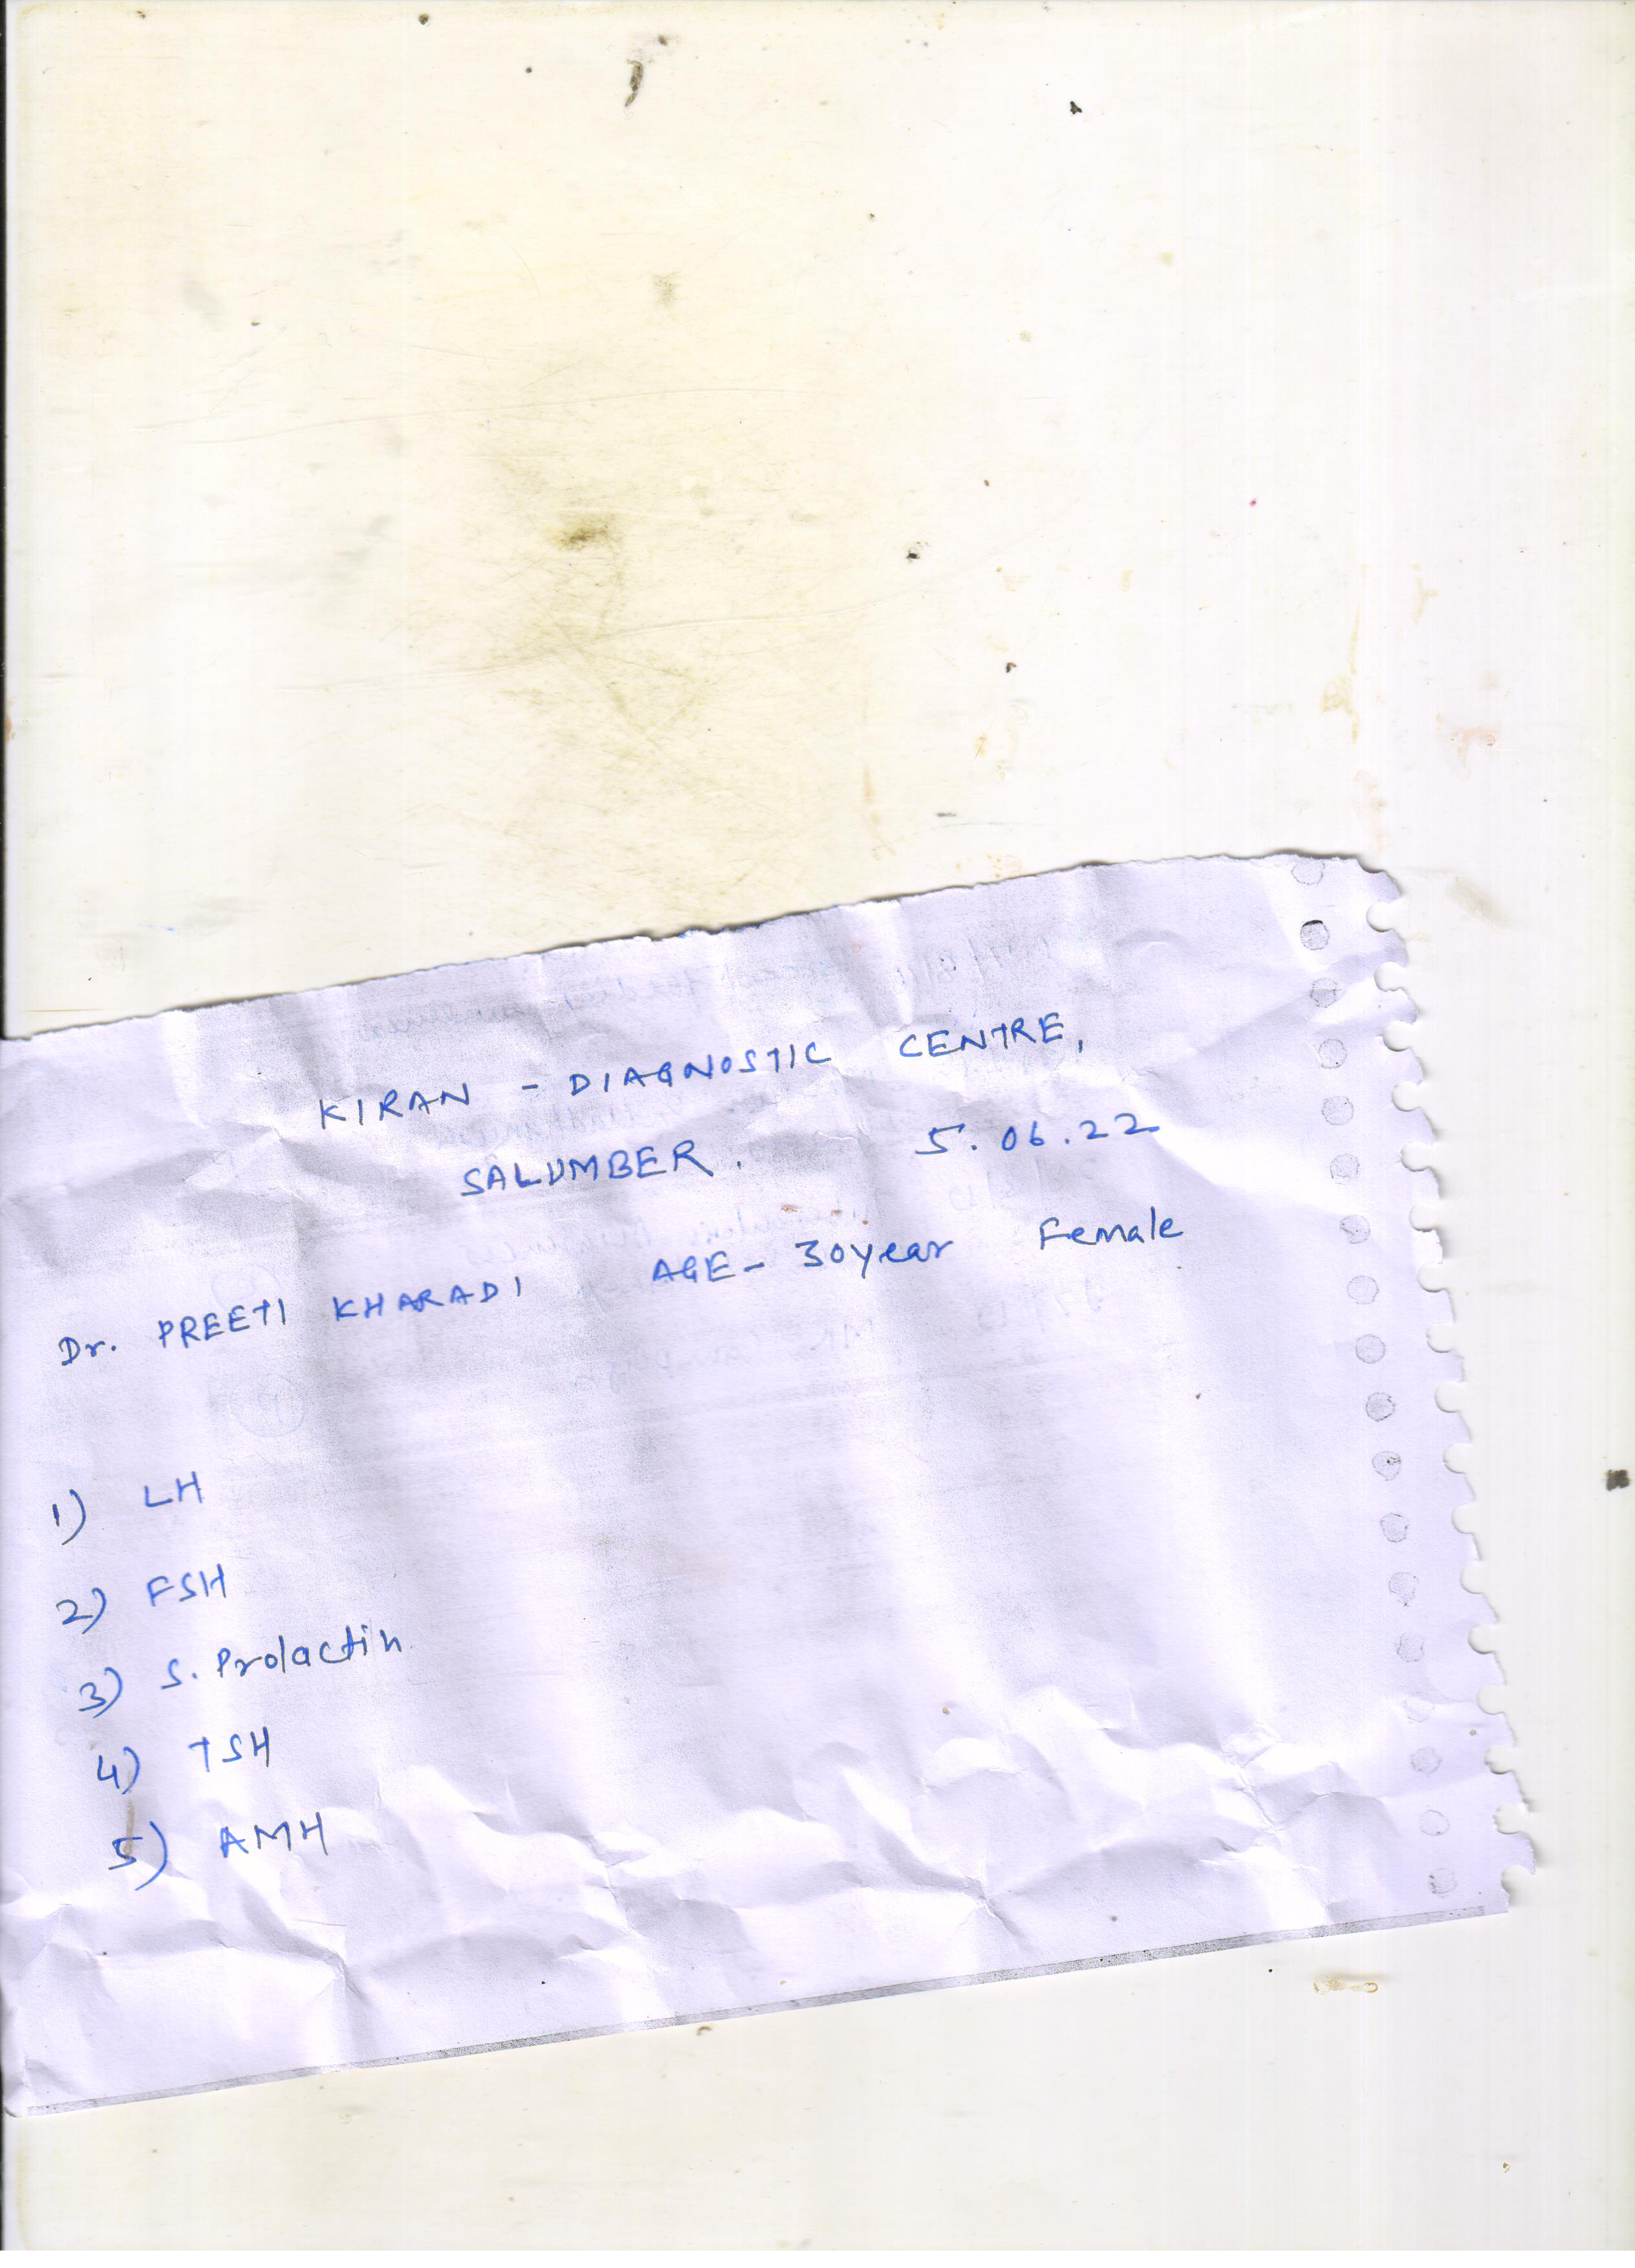 KIRAN - DIAGNOSTIC CENTRE,
SALUMBER. 5.06.22
Dr. PREETI KHARADI AGE- 30year Female
1) LH
2) FSH
3) S. Prolactin
4) TSH
5) AMH